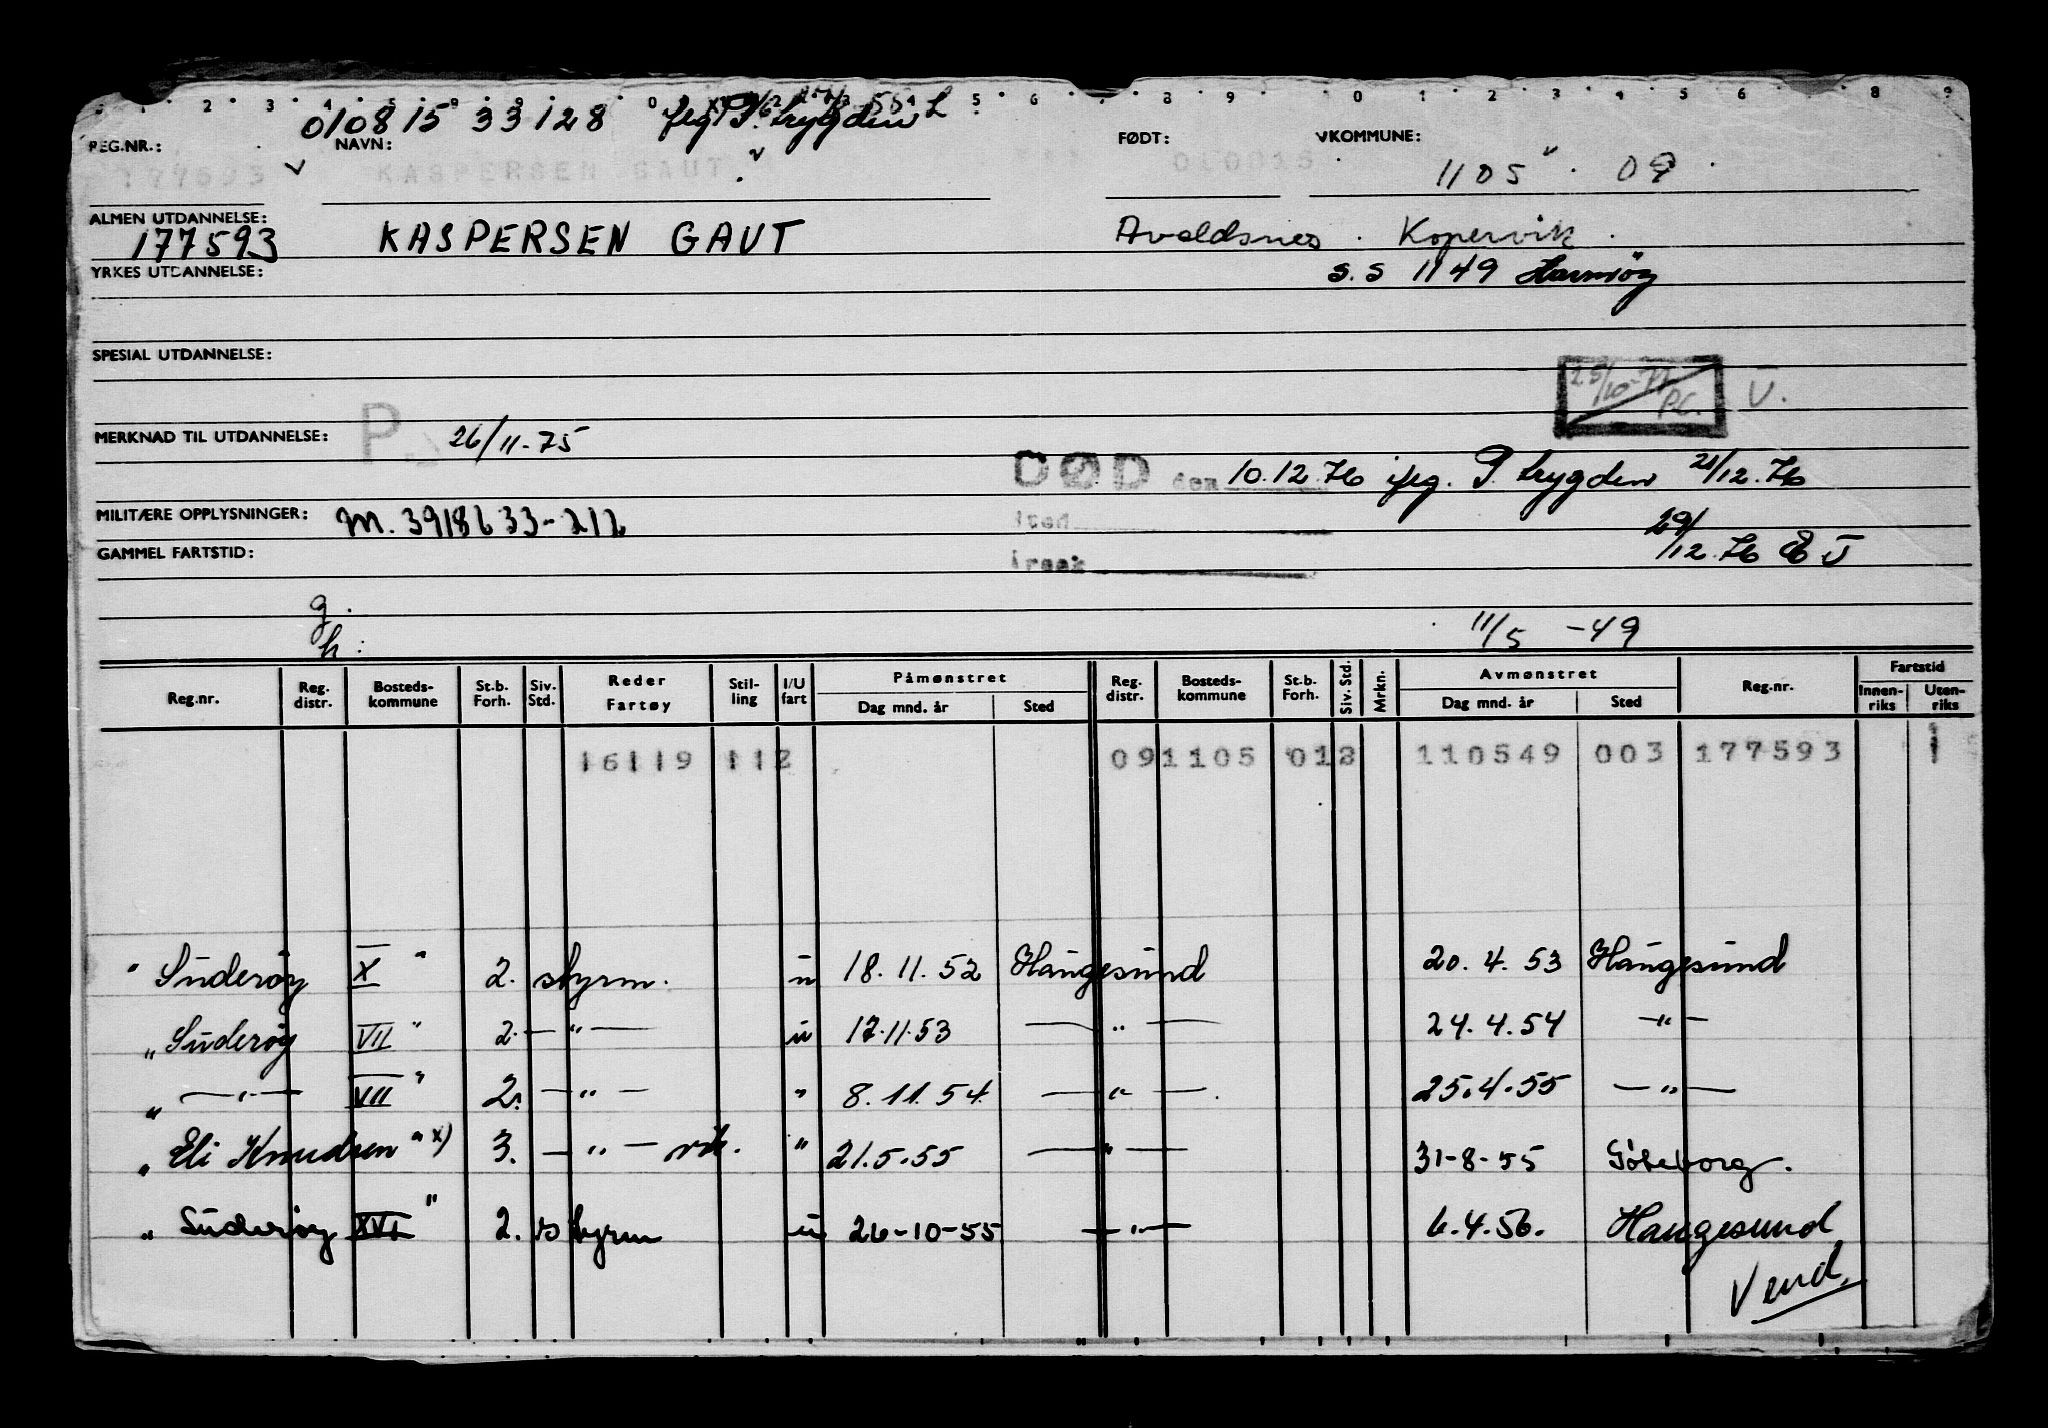 010815 33128
REG.NR.: NAVN: FØDT: KOMMUNE:
177593 KASPERSEN GAUT 010815 1105 09
ALMEN UTDANNELSE:
177593 KASPERSEN GAUT Avaldsnes. Kopervik.
YRKES UTDANNELSE: s.s 1149
SPESIAL UTDANNELSE:
25/10-77 P.C. V.
MERKNAD TIL UTDANNELSE: P. 26/11-75
DØD den 10.12.76 ifjg. P. trygden 21/12.76
MILITÆRE OPPLYSNINGER: M. 3918633-212
sted
29/12.76
GAMMEL FARTSTID:
årsak
g.
h:
11/5 -49
Reg.nr. Reg. distr. Bosteds-kommune St.b. Forh. Siv. Std. Reder Fartøy Stil-ling I/U fart Påmønstret Dag mnd. år Sted Reg. distr. Bosteds-kommune St.b. Forh. Siv. Std. Mrkn. Avmønstret Dag mnd. år Sted Reg.nr. Fartstid Innen-riks Uten-riks
16119 112 091105 012 110549 003 177593 1
" Suderøy X " 2. styrm. u 18.11.52 Haugesund 20.4.53 Haugesund
" Suderøy VII " 2. — " — u 17.11.53 — " — 24.4.54 — " —
" — " — VII " 2. — " — " 8.11.54 — " — 25.4.55 — " —
" Eli Knudsen " x) 3. — " — vik. " 21.5.55 — " — 31-8-55 Göteborg.
" Suderøy XVI " 2. styrm u 26-10-55 — " — 6.4.56. Haugesund
Vend.